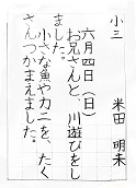 小三 米田 明未
六月四日（日）
お兄さんと、川遊びをし
ました。
小さな魚やカニを、たく
さんつかまえました。